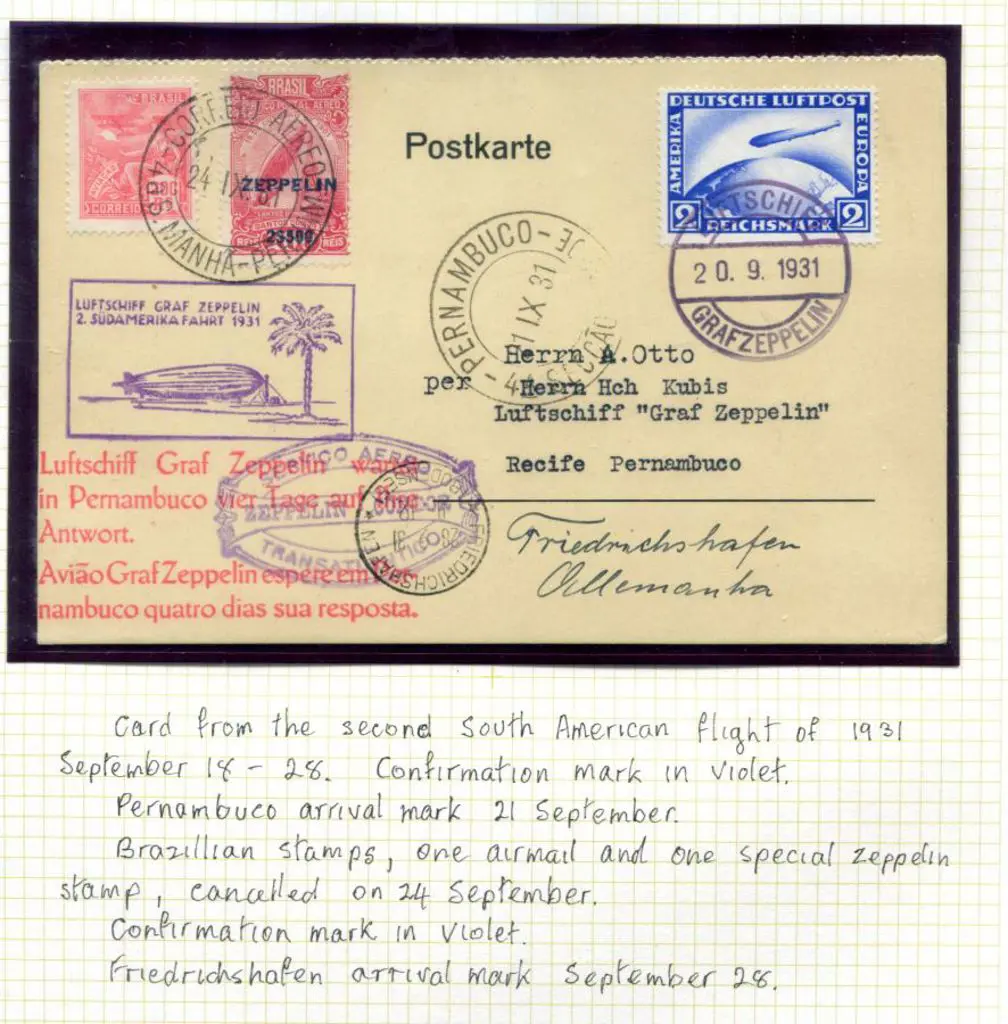 BRASIL
CORREIO
BRASIL
ZEPPELIN
2$500
REIS
CORREIO AEREO
24 IX 31
4ªS. MANHÃ-PER
Postkarte
DEUTSCHE LUFTPOST
AMERIKA
EUROPA
2 REICHSMARK 2
LUFTSCHIFF
20.9.1931
GRAFZEPPELIN
PERNAMBUCO
IX 31
LUFTSCHIFF GRAF ZEPPELIN
2. SÜDAMERIKAFAHRT 1931
Herrn A.Otto
per Herrn Hch Kubis
Luftschiff "Graf Zeppelin"
Recife Pernambuco
Luftschiff Graf Zeppelin wartet
in Pernambuco vier Tage auf Ihre
Antwort.
Avião Graf Zeppelin espere em
nambuco quatro dias sua resposta.
AEREO
ZEPPELIN
FRIEDRICHSHAFEN
Friedrichshafen
Allemanha
Card from the second South American flight of 1931
September 18 - 28. Confirmation mark in violet.
Pernambuco arrival mark 21 September.
Brazillian stamps, one airmail and one special zeppelin
stamp, cancelled on 24 September.
Confirmation mark in violet.
Friedrichshafen arrival mark September 28.